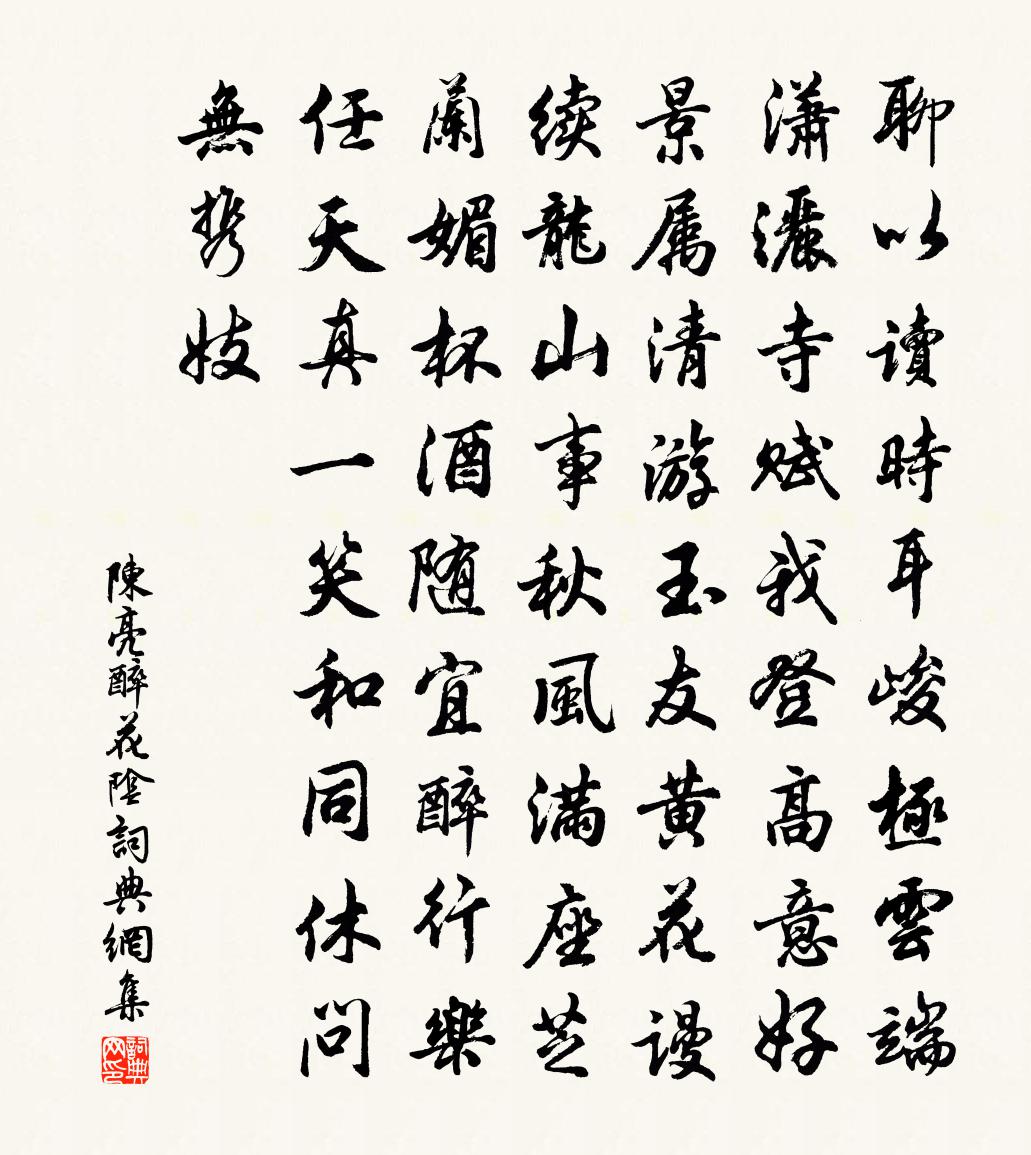 聊以讀時耳峻極雲端
瀟灑寺賦我登高意好
景属清游玉友黄花謾
续龍山事秋風滿座芝
蘭媚杯酒随宜醉行樂
任天真一笑和同休問
無携妓
陳亮醉花陰詞典網集
詞典网印